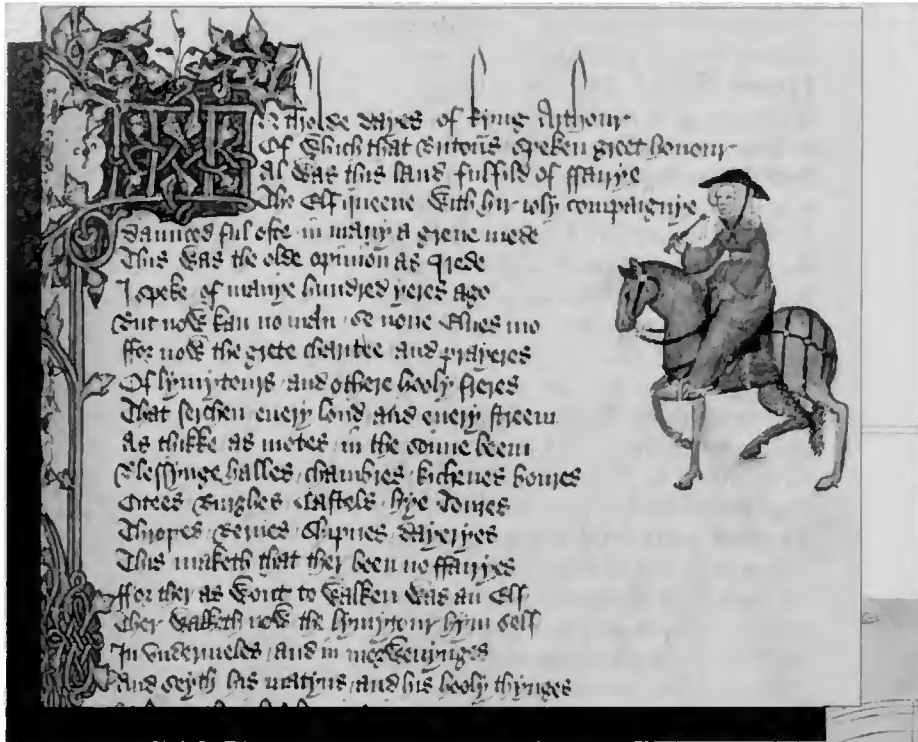 IN Tholde dayes of kyng Arthour
Of Which that Britons speken greet honour
Al was this land fulfild of ffairye
The Elf queene with hir ioly compaignye
Daunced ful ofte in many a grene mede
This was the olde opinion as I rede
I speke of manye hundred yeres ago
But now kan no man se none Elues mo
ffor now the grete charitee and prayeres
Of lymytours and othere hooly freres
That serchen euery lond and euery streem
As thikke as motes in the sonne beem
Blessynge halles chambres kichenes boures
Citees Burghes Castels hye Toures
Thropes Bernes Shipnes dayeryes
This maketh that ther been no ffairyes
ffor ther as wont to walken was an Elf
Ther walketh now the lymytour hym self
In vndermeles and in morwenynges
And seyth his matyns and his hooly thynges